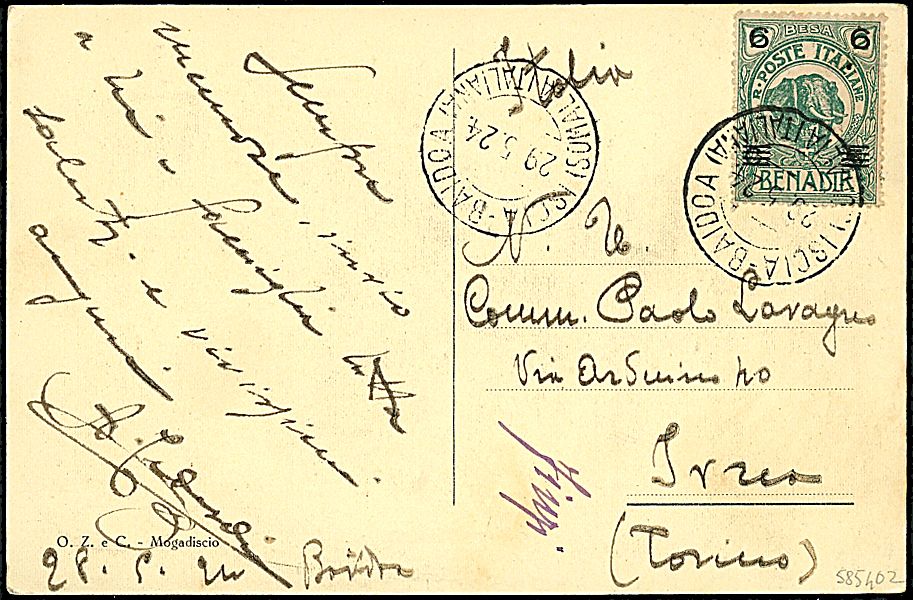 Sempre
memore, invio
a Lei e famiglia tutta
saluti e vivissimi
auguri.
28. 5. 24 Baidoa
O. Z. e C. - Mogadiscio
ISCIA-BAIDOA (SOMALIA ITALIANA)
29.5.24.
Italia
6 BESA 6
R. POSTE ITALIANE
BENADIR
ISCIA-BAIDOA (SOMALIA ITALIANA)
N. U.
Comm. Paolo Lavagno
Via Arduino 70
Ivrea
(Torino)
585402